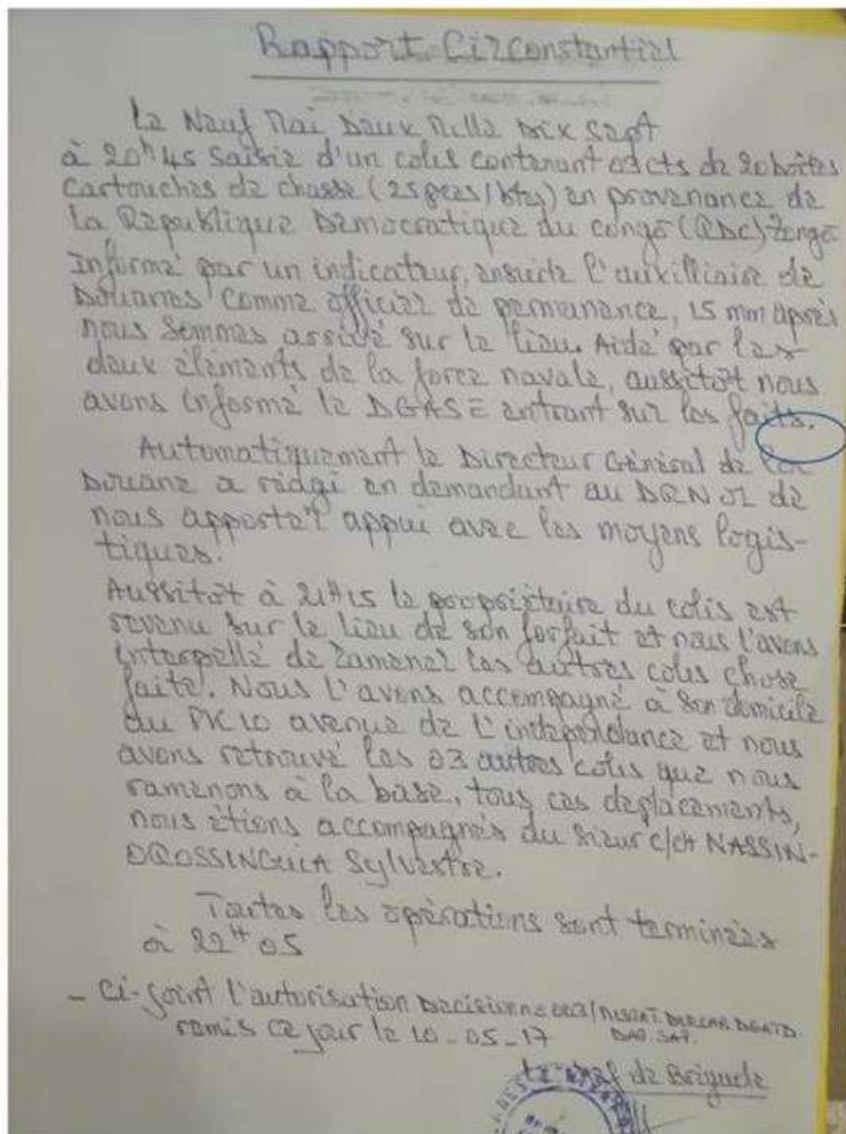 Rapport Circonstantiel
Le Neuf Mai Deux Mille Dix Sept
à 20h45 Saisie d'un colis contenant 03cts de 20 boîtes
Cartouches de chasse (25pces/btes) en provenance de
la République Démocratique du congo (RDC) Zongo
Informé par un indicateur, ensuite l'auxilliaire de
Douanes comme officier de permanance, 15 mm après
nous sommes arrivé sur le lieu. Aidé par les
deux éléments de la force navale, aussitôt nous
avons informé le DGASE entrant sur les faits.
Automatiquement le Directeur Général de la
Douane a rédgi en demandant au DRN 01 de
nous apporter appui avec les moyens logis-
tiques.
Aussitôt à 21H15 le propriétaire du colis est
revenu sur le lieu de son forfait et nous l'avons
interpellé de ramener les autres colis chose
faite. Nous l'avons accompagné à son domicile
au PK10 avenue de l'indépendance et nous
avons retrouvé les 03 autres colis que nous
ramenons à la base, tous ces déplacements,
nous étions accompagnés du sieur c/ch NASSIN-
Sylvestre.
Toutes les opérations sont terminées
à 22H05
- Ci-joint l'autorisation
remis ce jour le 10-05-17
de Brigade